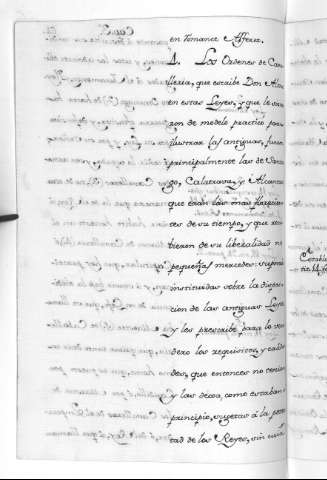 en Romance Affere.
4. Los Ordenes de Cava
lleria, que escribe Don Alonso
en estas Leyes, y que le sirvie
ron de modelo practico para
ilustrar las antiguas, fueron
principalmente las de Santia
go, Calatrava, y Alcantara
que eran las mas florecien
tes de su tiempo, y que
tienen de su liberalidad no
pequeñas mercedes:
instituidas sobre la disposi
cion de las antiguas Leyes
y les prescribe para lo ve
dero los requisitos, y calida
des, que entonces no tenian
y las dexa, como estaban al
principio, sugetas á la potes
tad de los Reyes, sin cuia